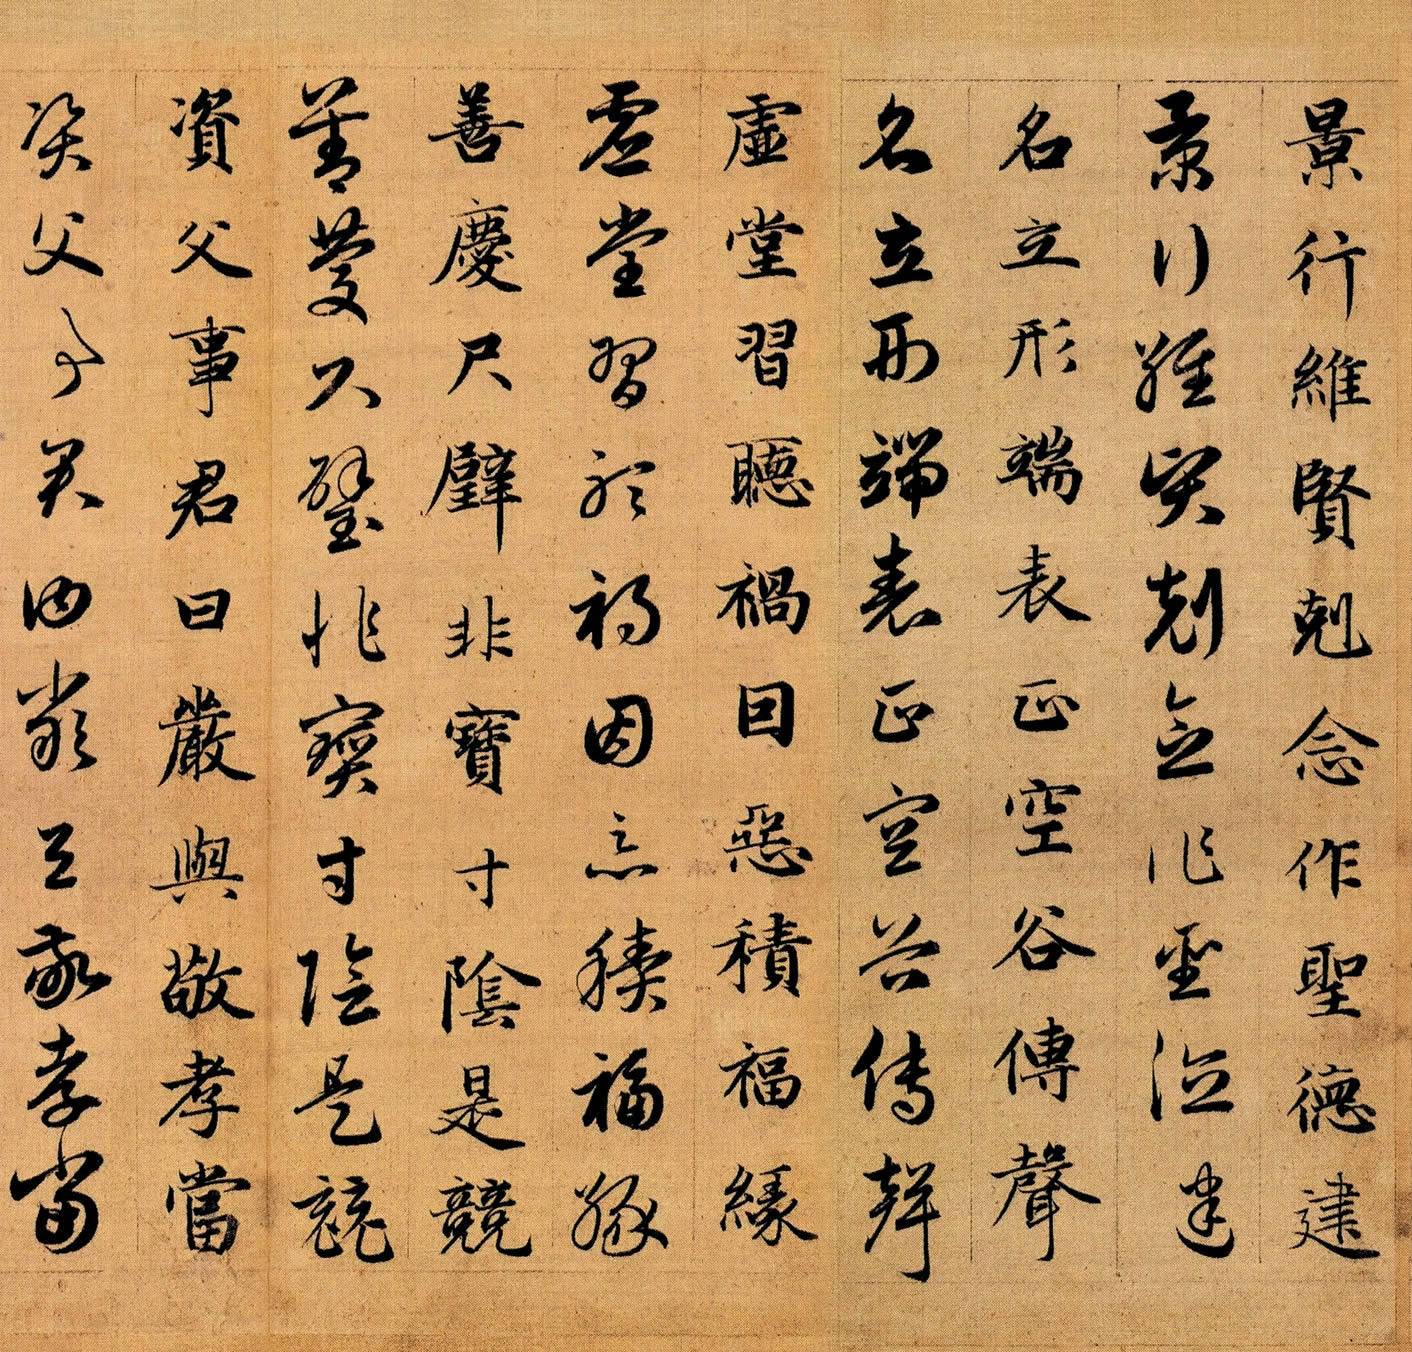 景行維賢剋念作聖德建
景行維賢剋念作聖德建
名立形端表正空谷傳聲
名立形端表正空谷傳聲
虛堂習聽禍因惡積福緣
虛堂習聽禍因惡積福緣
善慶尺璧非寶寸陰是競
善慶尺璧非寶寸陰是競
資父事君曰嚴與敬孝當
資父事君曰嚴與敬孝當